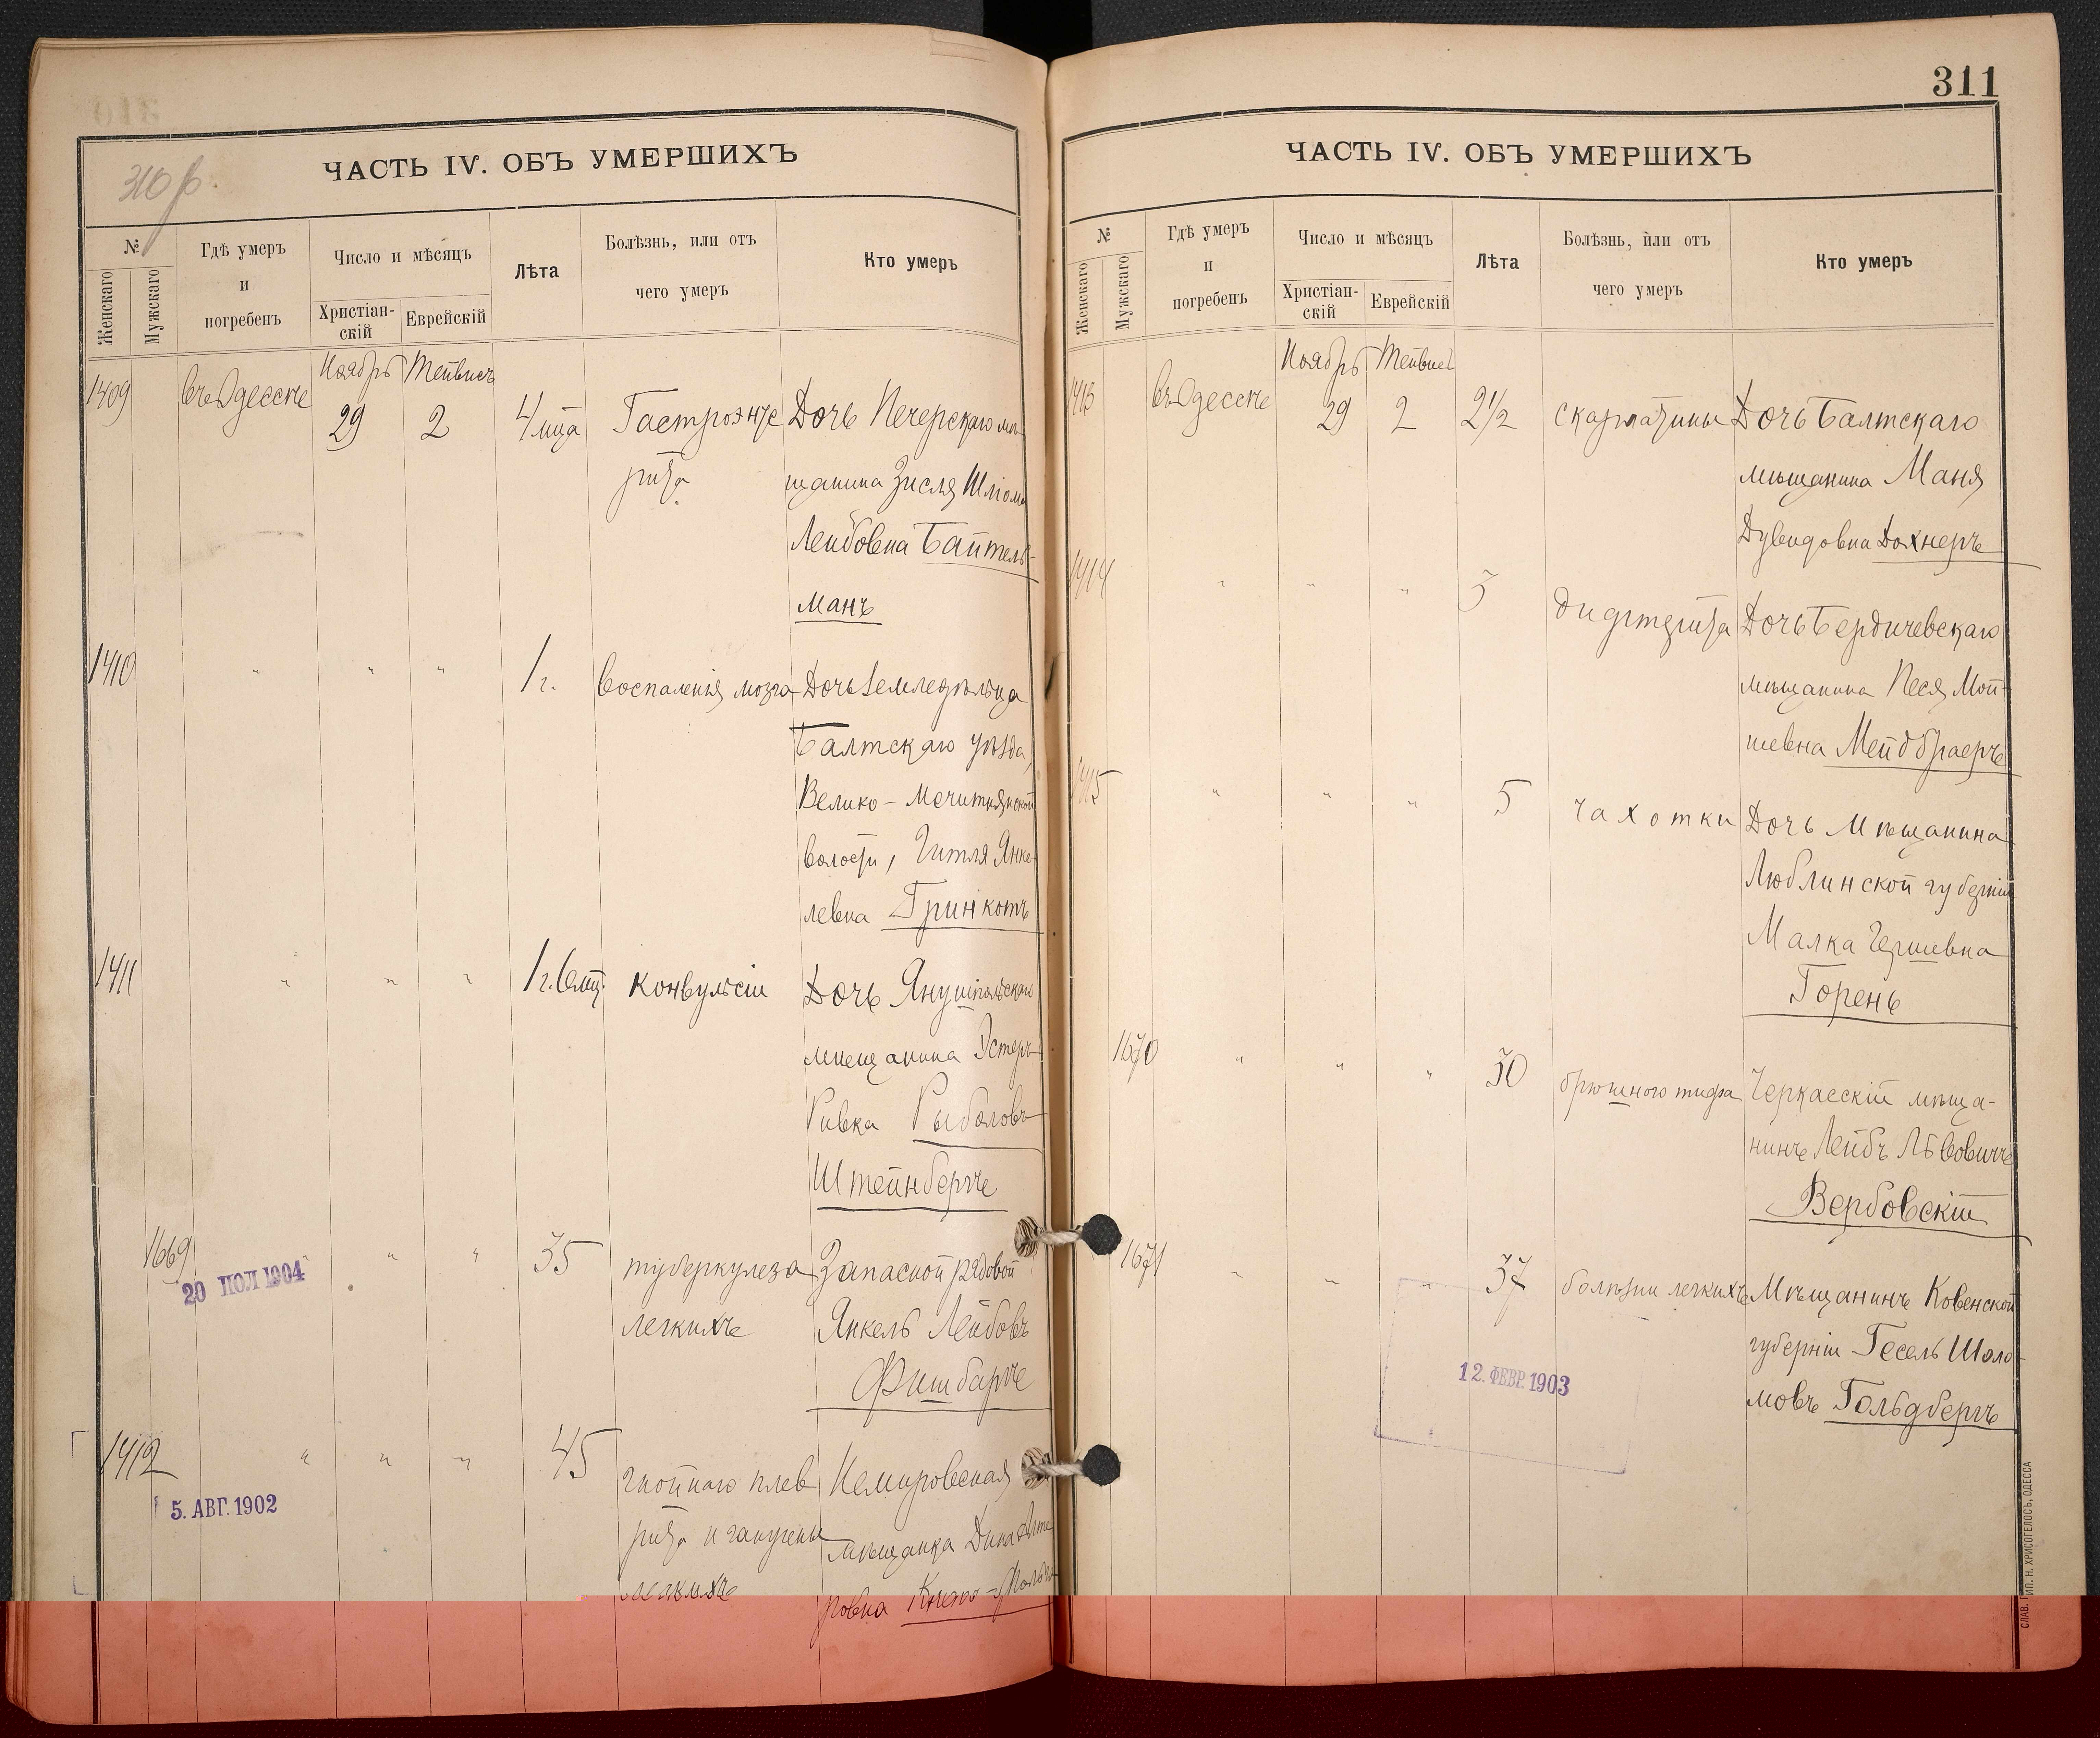 310 р.
ЧАСТЬ IV. ОБЪ УМЕРШИХЪ
№
Женскаго
Мужскаго
Гдѣ умеръ
и
погребенъ
Число и мѣсяцъ
Христіан-
скій
Еврейскій
Лѣта
Болѣзнь, или отъ
чего умеръ
Кто умеръ
Ноябрь Тейвисъ
1409 въ Одессѣ 29 2 4 мца Гастроэнте Дочь Печерскаго мѣ
рита щанина Зисля Шліома
Лейбовна Байтель-
манъ
1410 " " " 1 г. воспаленія мозга Дочь земледѣльца
Балтскаго уѣзда,
Велико-Мечитнянской
волости, Гитля Янке-
левна Гринкотъ
1411 " " " 1 г. 6 мц. конвульсіи Дочь Янушпольскаго
мѣщанина Эстеръ
Ривка Рыболовъ
Штейнбергъ
1669 " " " 35 туберкулеза Запасной рядовой
20 ІЮЛ 1904
легкихъ Янкель Лейбовъ
Фишбаргъ
1412 " " " 45 гнойнаго плев Немировская
5. АВГ. 1902
рита и гангрены мѣщанка Дина
легкихъ ровна
311
ЧАСТЬ IV. ОБЪ УМЕРШИХЪ
№
Женскаго
Мужскаго
Гдѣ умеръ
и
погребенъ
Число и мѣсяцъ
Христіан-
скій
Еврейскій
Лѣта
Болѣзнь, или отъ
чего умеръ
Кто умеръ
Ноябрь Тейвисъ
1413 въ Одессѣ 29 2 2½ скарлатины Дочь Балтскаго
мѣщанина Маня
Дувидовна Дохнеръ
1414 " " " 3 дифтерита Дочь Бердичевскаго
мѣщанина Песя Мой-
шевна Мейдбраеръ
1415 " " " 5 чахотки Дочь Мѣщанина
Люблинской губерніи
Малка Гершевна
Горень
1670 " " " 30 брюшного тифа Черкасскій мѣща-
нинъ Лейбъ Лѣвовичъ
Вербовскій
1671 " " " 37 болѣзни легкихъ Мѣщанинъ Ковенской
губерніи Гесель Шоло-
12. ФЕВР. 1903
мовъ Гольдбергъ
СЛАВ. ТИП. Н. ХРИСОГЕЛОСЪ, ОДЕССА